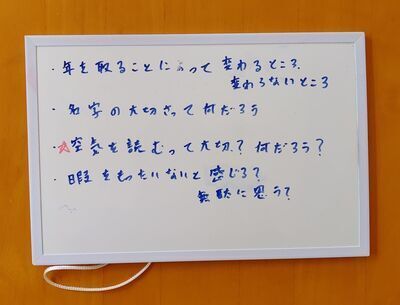 ・年を取ることによって変わるところ.
変わらないところ
・名字の大切さって何だろう
・☆空気を読むって大切？何だろう？
・暇をもったいないと感じる？
無駄に思う？